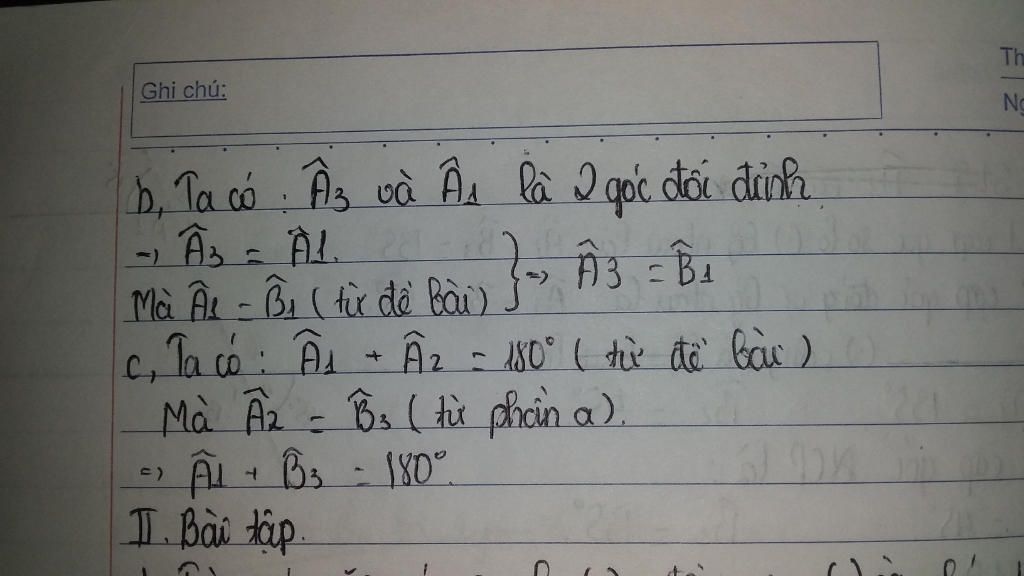 Th
Ghi chú:
Ng
b, Ta có : Â3 và Â1 là 2 góc đối đỉnh
=> Â3 = Â1.
Mà Â1 = B̂1 (từ đề bài) } => Â3 = B̂1
c, Ta có : Â1 + Â2 = 180° (từ đề bài)
Mà Â2 = B̂3 (từ phần a).
=> Â1 + B̂3 = 180°.
II. Bài tập.